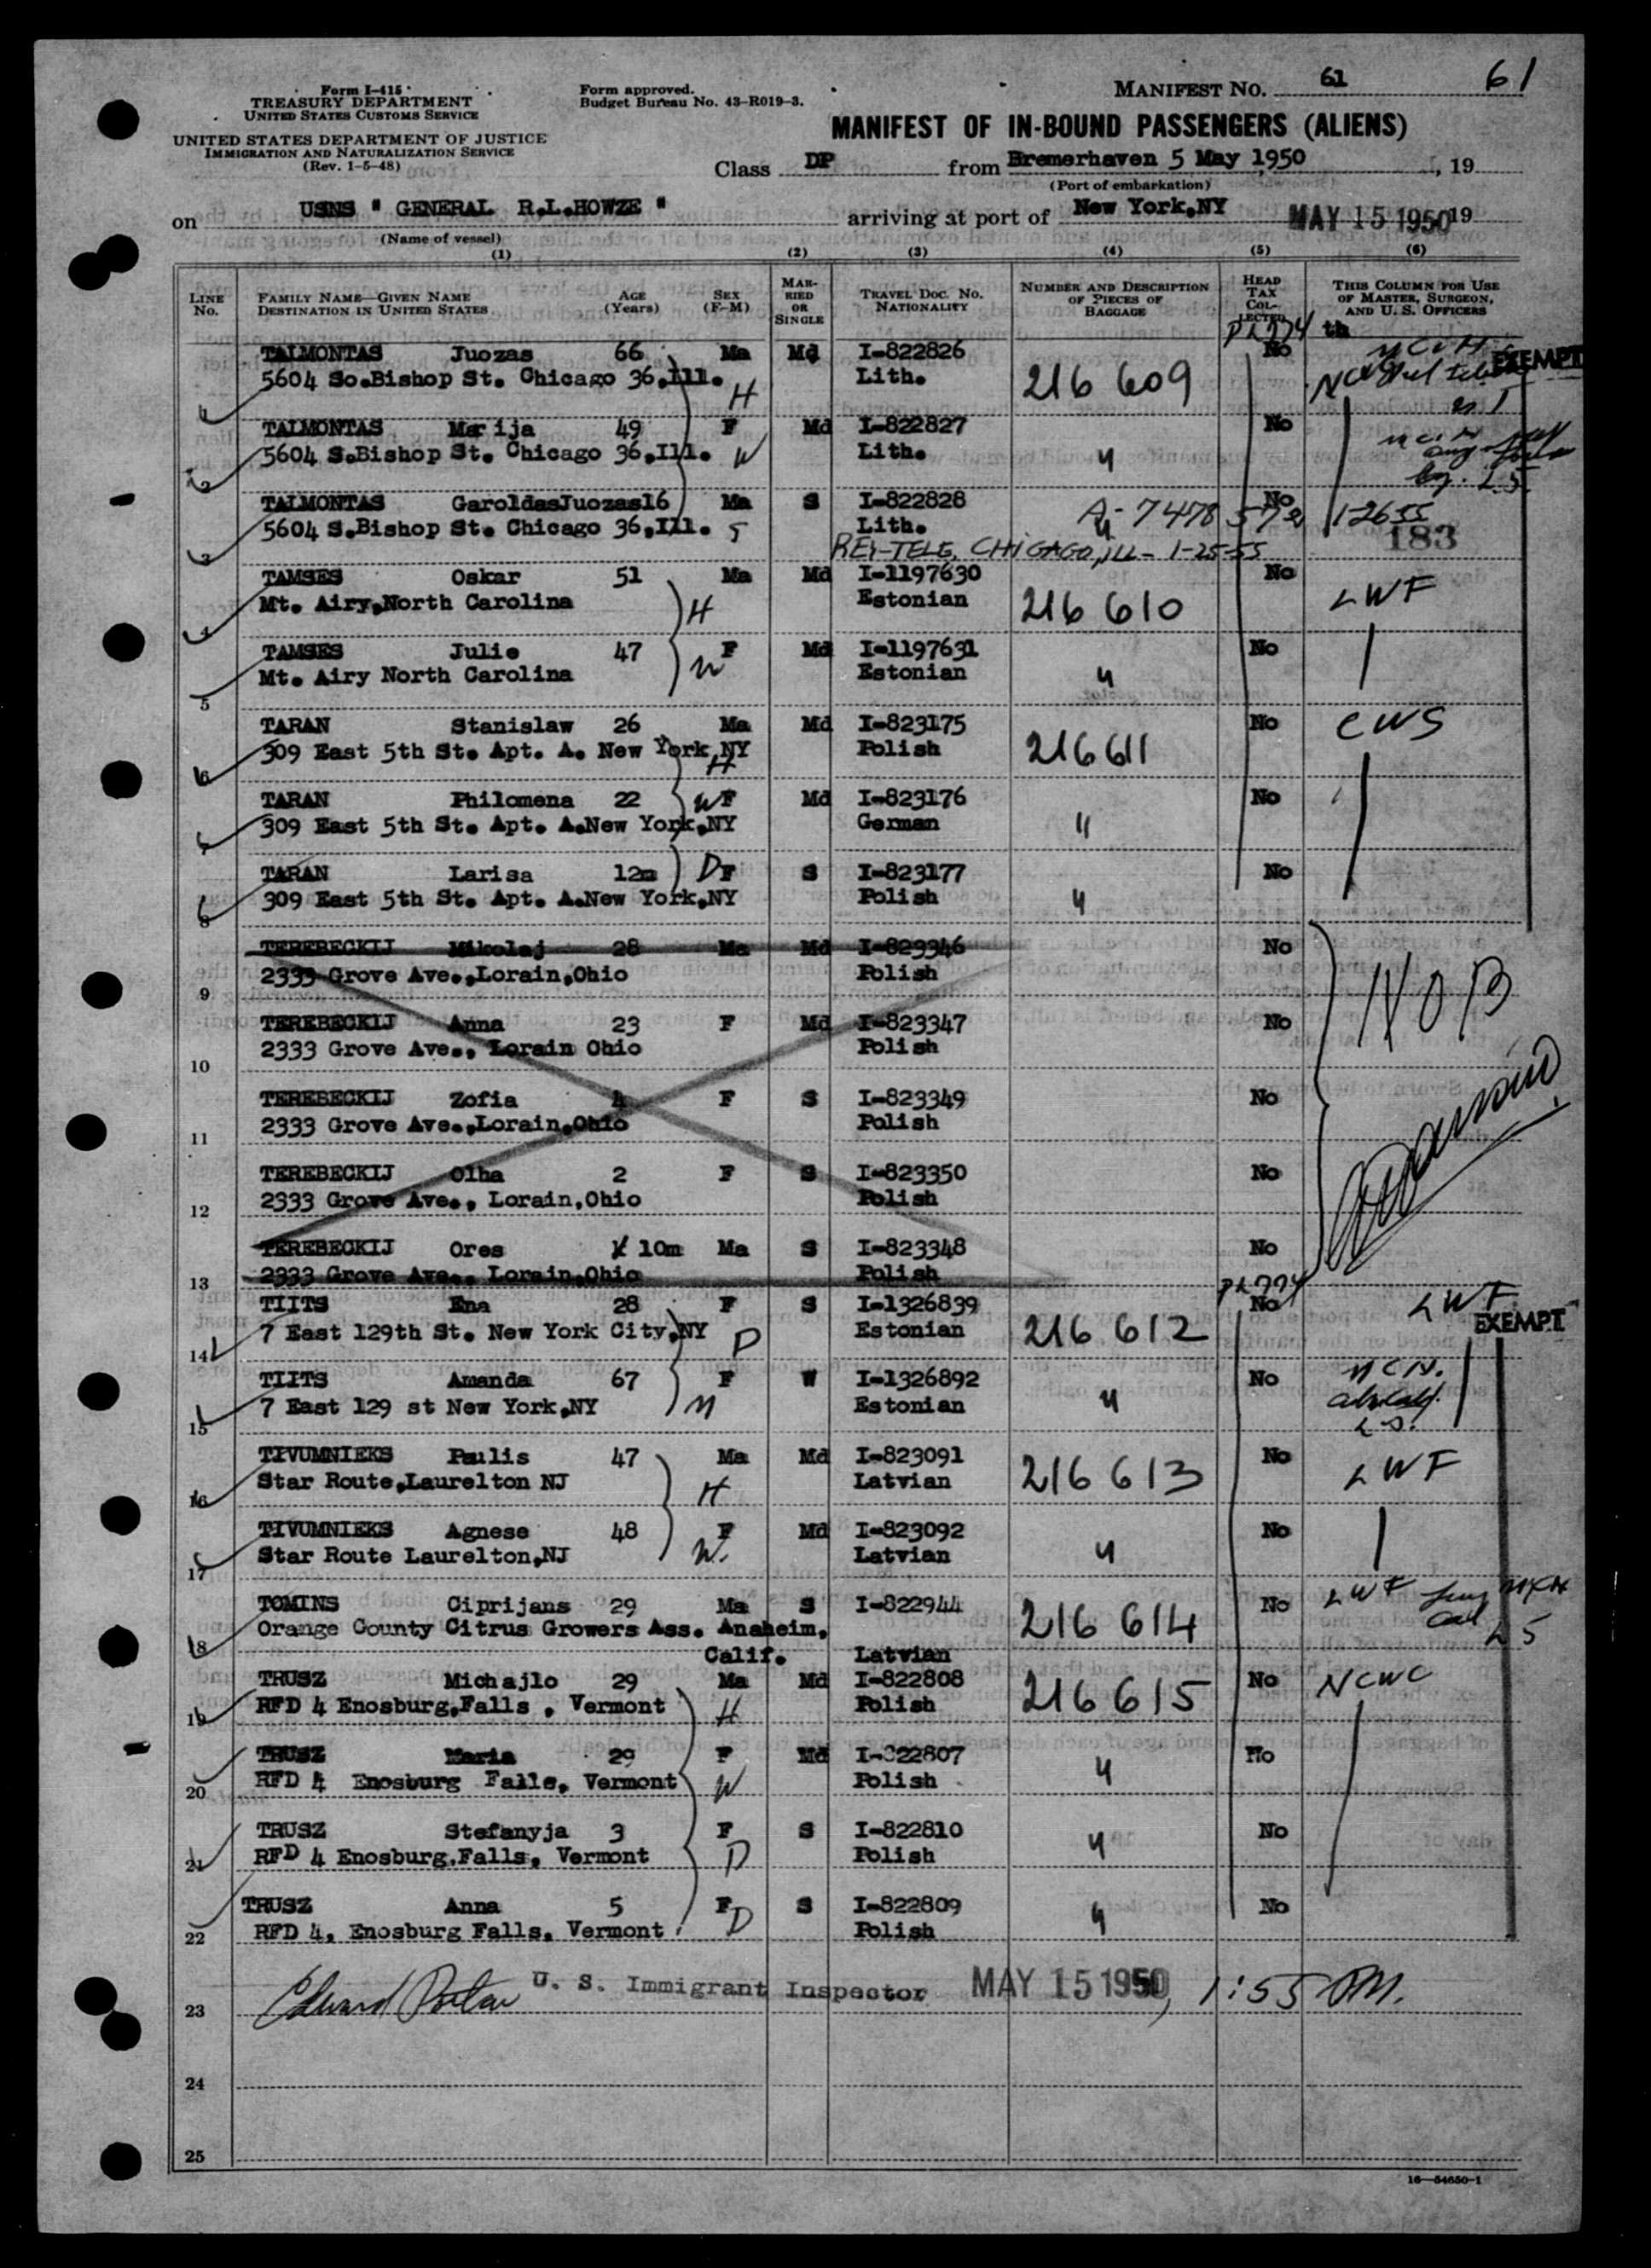 Form I-415
TREASURY DEPARTMENT
UNITED STATES CUSTOMS SERVICE
UNITED STATES DEPARTMENT OF JUSTICE
IMMIGRATION AND NATURALIZATION SERVICE
(Rev. 1-5-48)
Form approved.
Budget Bureau No. 43-R019-3.
MANIFEST NO. 61 61
MANIFEST OF IN-BOUND PASSENGERS (ALIENS)
Class DP from Bremerhaven 5 May 1950, 19
(Port of embarkation)
on USNS " GENERAL R.L.HOWZE " arriving at port of New York,NY MAY 15 1950 19
(Name of vessel)
(1) (2) (3) (4) (5) (6)
LINE No. FAMILY NAME—GIVEN NAME DESTINATION IN UNITED STATES AGE (Years) SEX (F-M) MARRIED OR SINGLE TRAVEL DOC. NO. NATIONALITY NUMBER AND DESCRIPTION OF PIECES OF BAGGAGE HEAD TAX COLLECTED THIS COLUMN FOR USE OF MASTER, SURGEON, AND U. S. OFFICERS
PL 774 th
TALMONTAS Juozas 66 Ma Md I-822826 No EXEMPT
5604 So.Bishop St. Chicago 36,Ill. H Lith. 216 609
TALMONTAS Marija 49 F Md I-822827 No
2 5604 S.Bishop St. Chicago 36,Ill. W Lith. "
TALMONTAS GaroldasJuozas16 Ma S I-822828 No
3 5604 S.Bishop St. Chicago 36,Ill. S Lith. " A-7478 572 1-26 55 183
REI-TELE, CHICAGO, ILL - 1-25-55
TAMSES Oskar 51 Ma Md I-1197630 No
4 Mt. Airy,North Carolina H Estonian 216 610 LWF
TAMSES Julie 47 F Md I-1197631 No
5 Mt. Airy North Carolina W Estonian "
TARAN Stanislaw 26 Ma Md I-823175 No CWS
6 309 East 5th St. Apt. A. New York,NY H Polish 216611
TARAN Philomena 22 W F Md I-823176 No
7 309 East 5th St. Apt. A.New York,NY German "
TARAN Larisa 12m D F S I-823177 No
8 309 East 5th St. Apt. A.New York,NY Polish "
TEREBECKIJ Mikolaj 28 Ma Md I-829346 No
9 2333 Grove Ave.,Lorain,Ohio Polish NOB
TEREBECKIJ Anna 23 F Md I-823347 No
10 2333 Grove Ave., Lorain Ohio Polish
TEREBECKIJ Zofia 4 F S I-823349 No
11 2333 Grove Ave.,Lorain,Ohio Polish
TEREBECKIJ Olha 2 F S I-823350 No
12 2333 Grove Ave., Lorain,Ohio Polish
TEREBECKIJ Ores 10m Ma S I-823348 No
13 2333 Grove Ave., Lorain,Ohio Polish PL 774
TIITS Ena 28 F S I-1326839 No LWF
14 7 East 129th St. New York City,NY D Estonian 216 612 EXEMPT
TIITS Amanda 67 F W I-1326892 No
15 7 East 129 st New York,NY M Estonian "
TIVUMNIEKS Paulis 47 Ma Md I-823091 No
16 Star Route,Laurelton NJ H Latvian 216 613 LWF
TIVUMNIEKS Agnese 48 F Md I-823092 No
17 Star Route Laurelton,NJ W. Latvian "
TOMINS Ciprijans 29 Ma S I-822944 No LWF
18 Orange County Citrus Growers Ass. Anaheim, 216 614
Calif. Latvian
TRUSZ Michajlo 29 Ma Md I-822808 No NCWC
19 RFD 4 Enosburg,Falls , Vermont H Polish 216 615
TRUSZ Maria 29 F Md I-822807 No
20 RFD 4 Enosburg Falls, Vermont W Polish "
TRUSZ Stefanyja 3 F S I-822810 No
21 RFD 4 Enosburg,Falls, Vermont D Polish "
TRUSZ Anna 5 F S I-822809 No
22 RFD 4, Enosburg Falls, Vermont D Polish "
23 Edward U. S. Immigrant Inspector MAY 15 1950, 1:55 PM.
24
25
16—54650-1